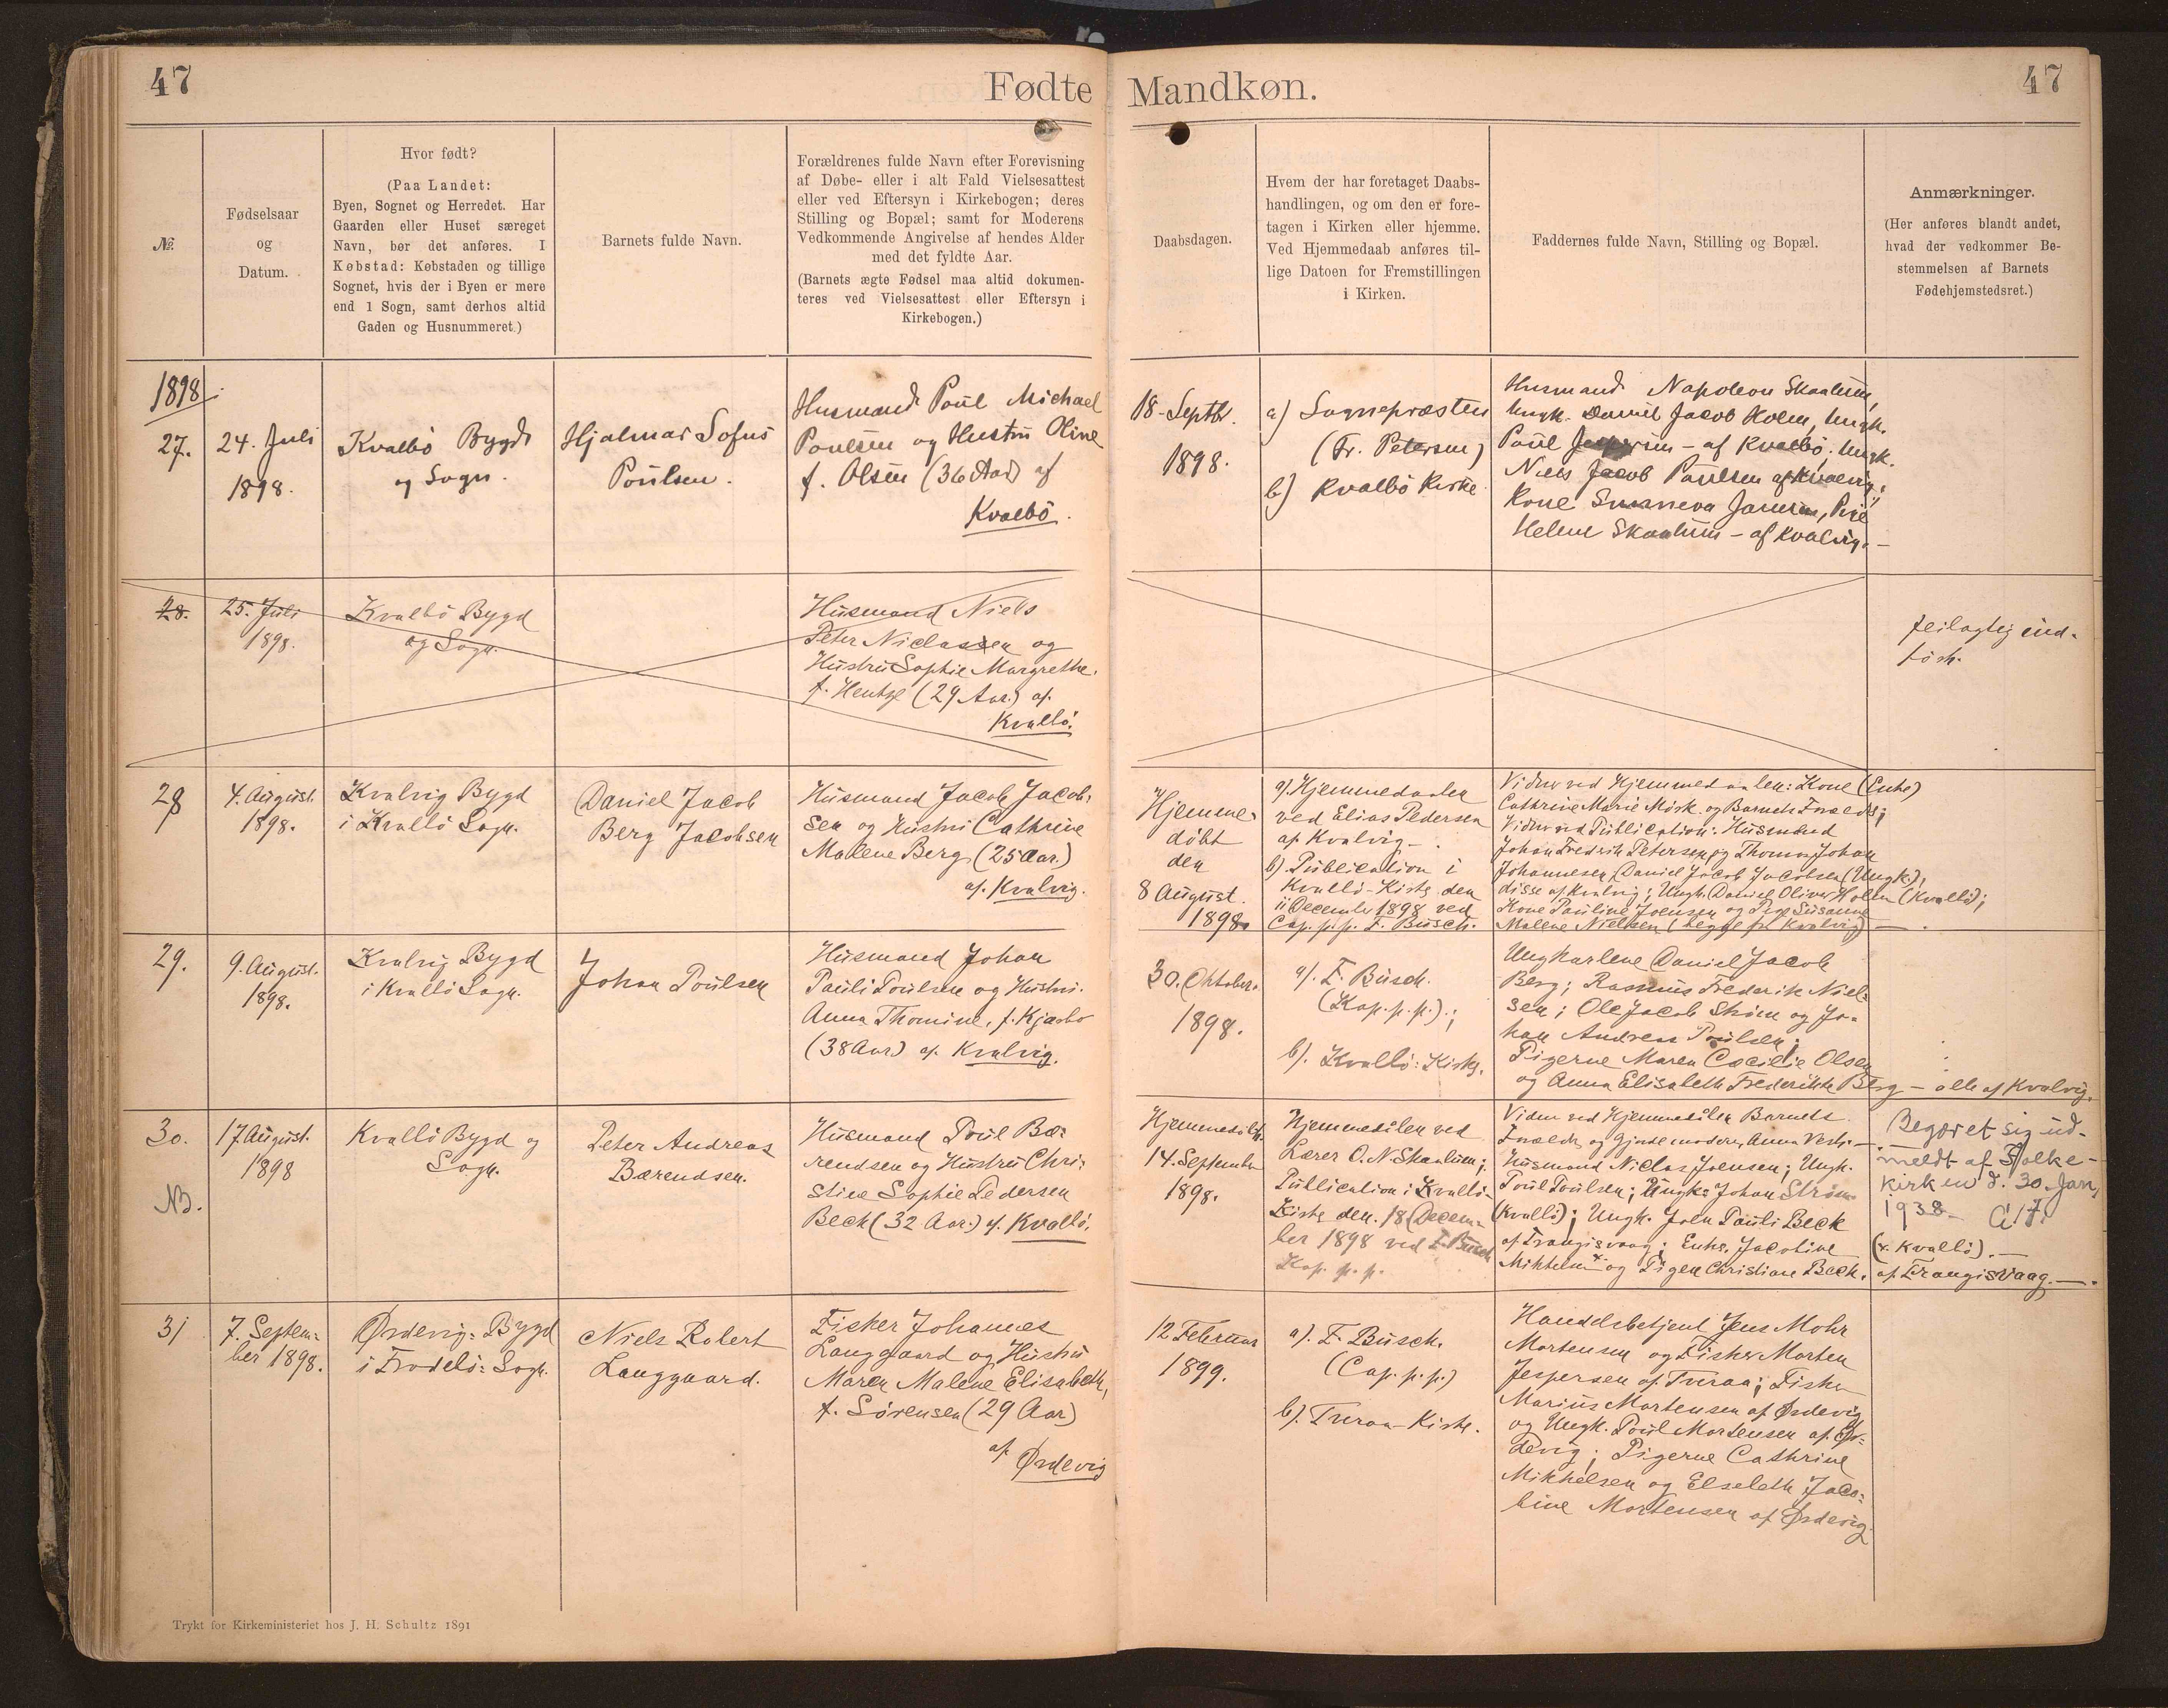 47
Fødte
Mandkøn.
47
№
Fødselsaar
og
Datum.
Hvor født?
(Paa Landet:
Byen, Sognet og Herredet. Har
Gaarden eller Huset særeget
Navn, bør det anføres. I
Købstad: Købstaden og tillige
Sognet, hvis der i Byen er mere
end 1 Sogn, samt derhos altid
Gaden og Husnummeret.)
Barnets fulde Navn.
Forældrenes fulde Navn efter Forevisning
af Døbe- eller i alt Fald Vielsesattest
eller ved Eftersyn i Kirkebogen; deres
Stilling og Bopæl; samt for Moderens
Vedkommende Angivelse af hendes Alder
med det fyldte Aar.
(Barnets ægte Fødsel maa altid dokumen-
teres ved Vielsesattest eller Eftersyn i
Kirkebogen.)
Daabsdagen.
Hvem der har foretaget Daabs-
handlingen, og om den er fore-
tagen i Kirken eller hjemme.
Ved Hjemmedaab anføres til-
lige Datoen for Fremstillingen
i Kirken.
Faddernes fulde Navn, Stilling og Bopæl.
Anmærkninger.
(Her anføres blandt andet,
hvad der vedkommer Be-
stemmelsen af Barnets
Fødehjemstedsret.)
1898
27.
24. Juli
1898.
Kvalbö Bygd
og Sogn.
Hjalmar Sofus
Poulsen.
Husmand Poul Michael
Poulsen og Hustru Oline
f. Olsen (36 Aar) af
Kvalbö.
18. Septbr.
1898.
a) Sognepræsten
(Fr. Petersen)
b) Kvalbö Kirke
Husmand Napoleon Skaalum,
Ungk. Daniel Jacob Holm, Ungk.
Poul Jespersen - af Kvalbö; Ungk.
Niels Jacob Poulsen af Kvalvig;
Kone Sunneva Jansen, Pige
Helene Skaalum - af Kvalvig. -
28.
25. Juli
1898.
Kvalbö Bygd
og Sogn.
Husmand Niels
Peter Niclasen og
Hustru Sophie Margrethe,
f. Hentze (29 Aar.) af
Kvalbö.
feilagtig ind-
förk.
28
4. August.
1898.
Kvalvig Bygd
i Kvalbö Sogn.
Daniel Jacob
Berg Jacobsen
Husmand Jacob Jacob-
sen og Hustru Cathrine
Malene Berg (25 Aar.)
af Kvalvig.
Hjemme-
døbt
den
8 August.
1898.
a). Hjemmedaaben
ved Elias Pedersen
af Kvalvig -.
b). Publication i
Kvalbö-Kirke den
11 December 1898 ved
Cap. p.p. F. Busch.
Vidner ved Hjemmedaaben: Kone (Enke)
Cathrine Marie Mörk og Barnets Forældre;
Vidner ved Publication: Husmand
Johan Fredrik Petersen og Thomas Johan
Johannesen, Daniel Jacob Jacobsen (Ungk.),
disse af Kvalvig; Ungk. Daniel Oliver Holm (Kvalbö);
Kone Pauline Joensen og Pige Susanne
Malene Nielsen (begge fra Kvalvig) -
29.
9. August.
1898.
Kvalvig Bygd
i Kvalbö Sogn.
Johan Poulsen
Husmand Johan
Pauli Poulsen og Hustru.
Anna Thomine, f. Kjærbo
(38 Aar) af Kvalvig.
30. Oktober.
1898.
a). F. Busch.
(Kap. p. p.).;
b). Kvalbö: Kirke.
Ungkarlene Daniel Jacob
Berg; Rasmus Frederik Niel-
sen; Ole Jacob Ström og Jo-
han Andreas Poulsen;
Pigerne Maren Cæcilie Olsen
og Anna Elisabeth Frederikke Berg - alle af Kvalvig.
30.
NB.
17. August.
1898
Kvalbö Bygd og
Sogn.
Peter Andreas
Bærendsen.
Husmand Poul Bæ-
rendsen og Hustru Chri-
stine Sophie Pedersen
Beck (32 Aar.) af Kvalbö.
14. September
1898.
Hjemmedaaben ved
Lærer O. N. Skaalum;
Publication i Kvalbö-
Kirke den 18 Decem-
ber 1898 ved F. Busch
Kap. p. p.
Vidner ved Hjemmedaaben Barnets
Forældre og Gjordemoderen Anna
Husmand Niclas Joensen; Ungk.
Poul Poulsen; Ungk. Johan Ström
(Kvalbö); Ungk. Joen Pauli Beck
af Frangisvaag; Enke. Jacobine (x. Kvalbö). -
Mikkelsen x og Pigen Christiane Beck. af Frangisvaag. -
Begæret sig ud-
meldt af Folke-
kirken d. 30. Jan,
1938 -
31
7. Septem-
ber 1898.
Ørdevig-Bygd
i Frodebö-Sogn.
Niels Robert
Langgaard.
Fisker Johannes
Langgaard og Hustru
Maren Malene Elisabeth,
f. Sörensen (29 Aar)
af
Ørdevig
12 Februar
1899.
a). F. Busch.
(Cap. p. p.)
b). Tveraa-Kirke.
Handelsbetjent Jens Mohr
Mortensen og Fisker Morten
Jespersen af Tveraa; Fisker
Marius Mortensen af Ørdevig
og Ungk. Poul Mortensen af Ør-
devig; Pigerne Cathrine
Mikkelsen og Elsebeth Jaco-
bine Mortensen af Ørdevig
Trykt for Kirkeministeriet hos J. H. Schultz 1891